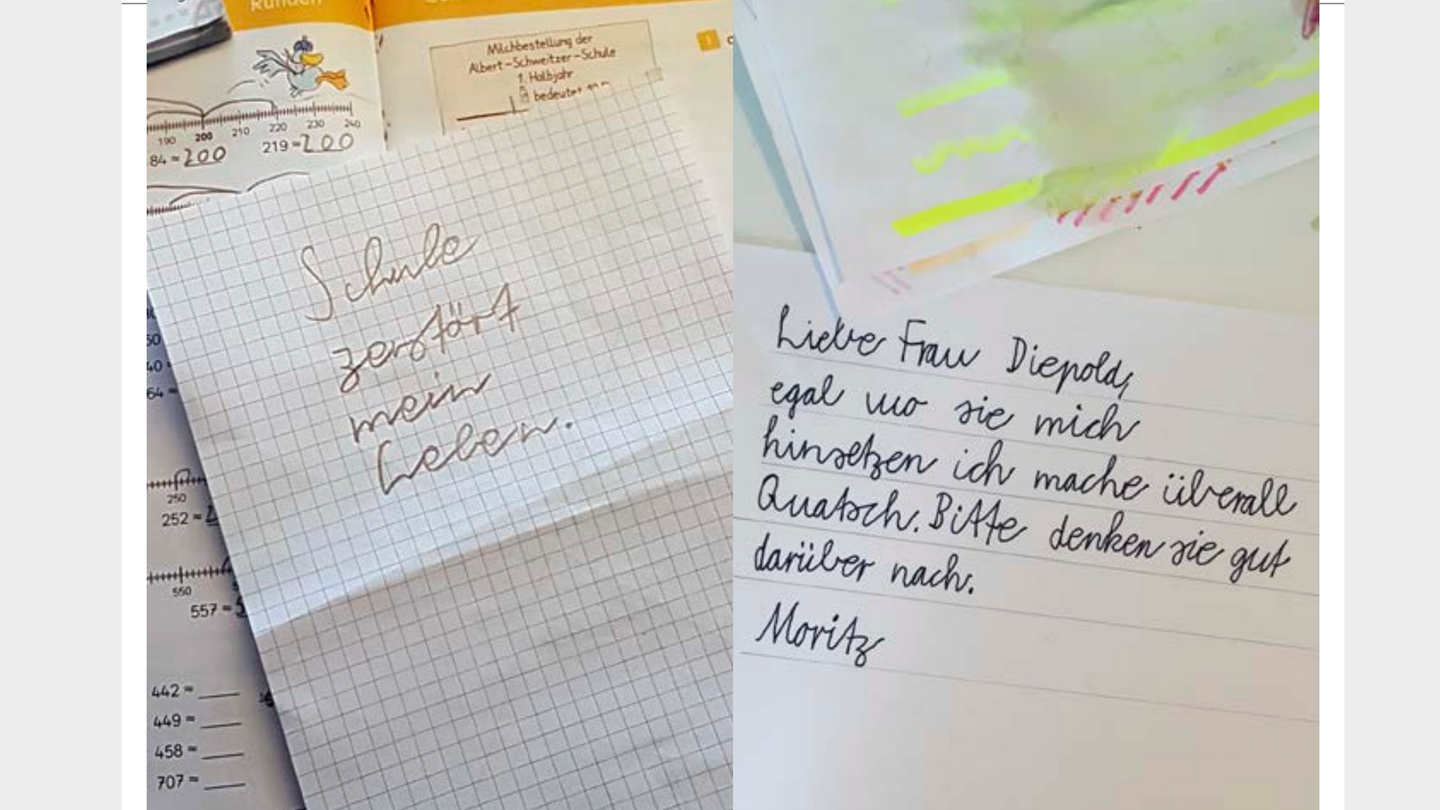 Runden
Milchbestellung der
Albert-Schweitzer-Schule
1. Halbjahr
bedeutet
1
190 200 210 220 230 240
84 ≈ 200 219 ≈ 200
Schule
zerstört
mein
Leben.
250
252 ≈
550
557 ≈
442 ≈
449 ≈
458 ≈
707 ≈
Liebe Frau Diepold,
egal wo sie mich
hinsetzen ich mache überall
Quatsch. Bitte denken sie gut
darüber nach.
Moritz